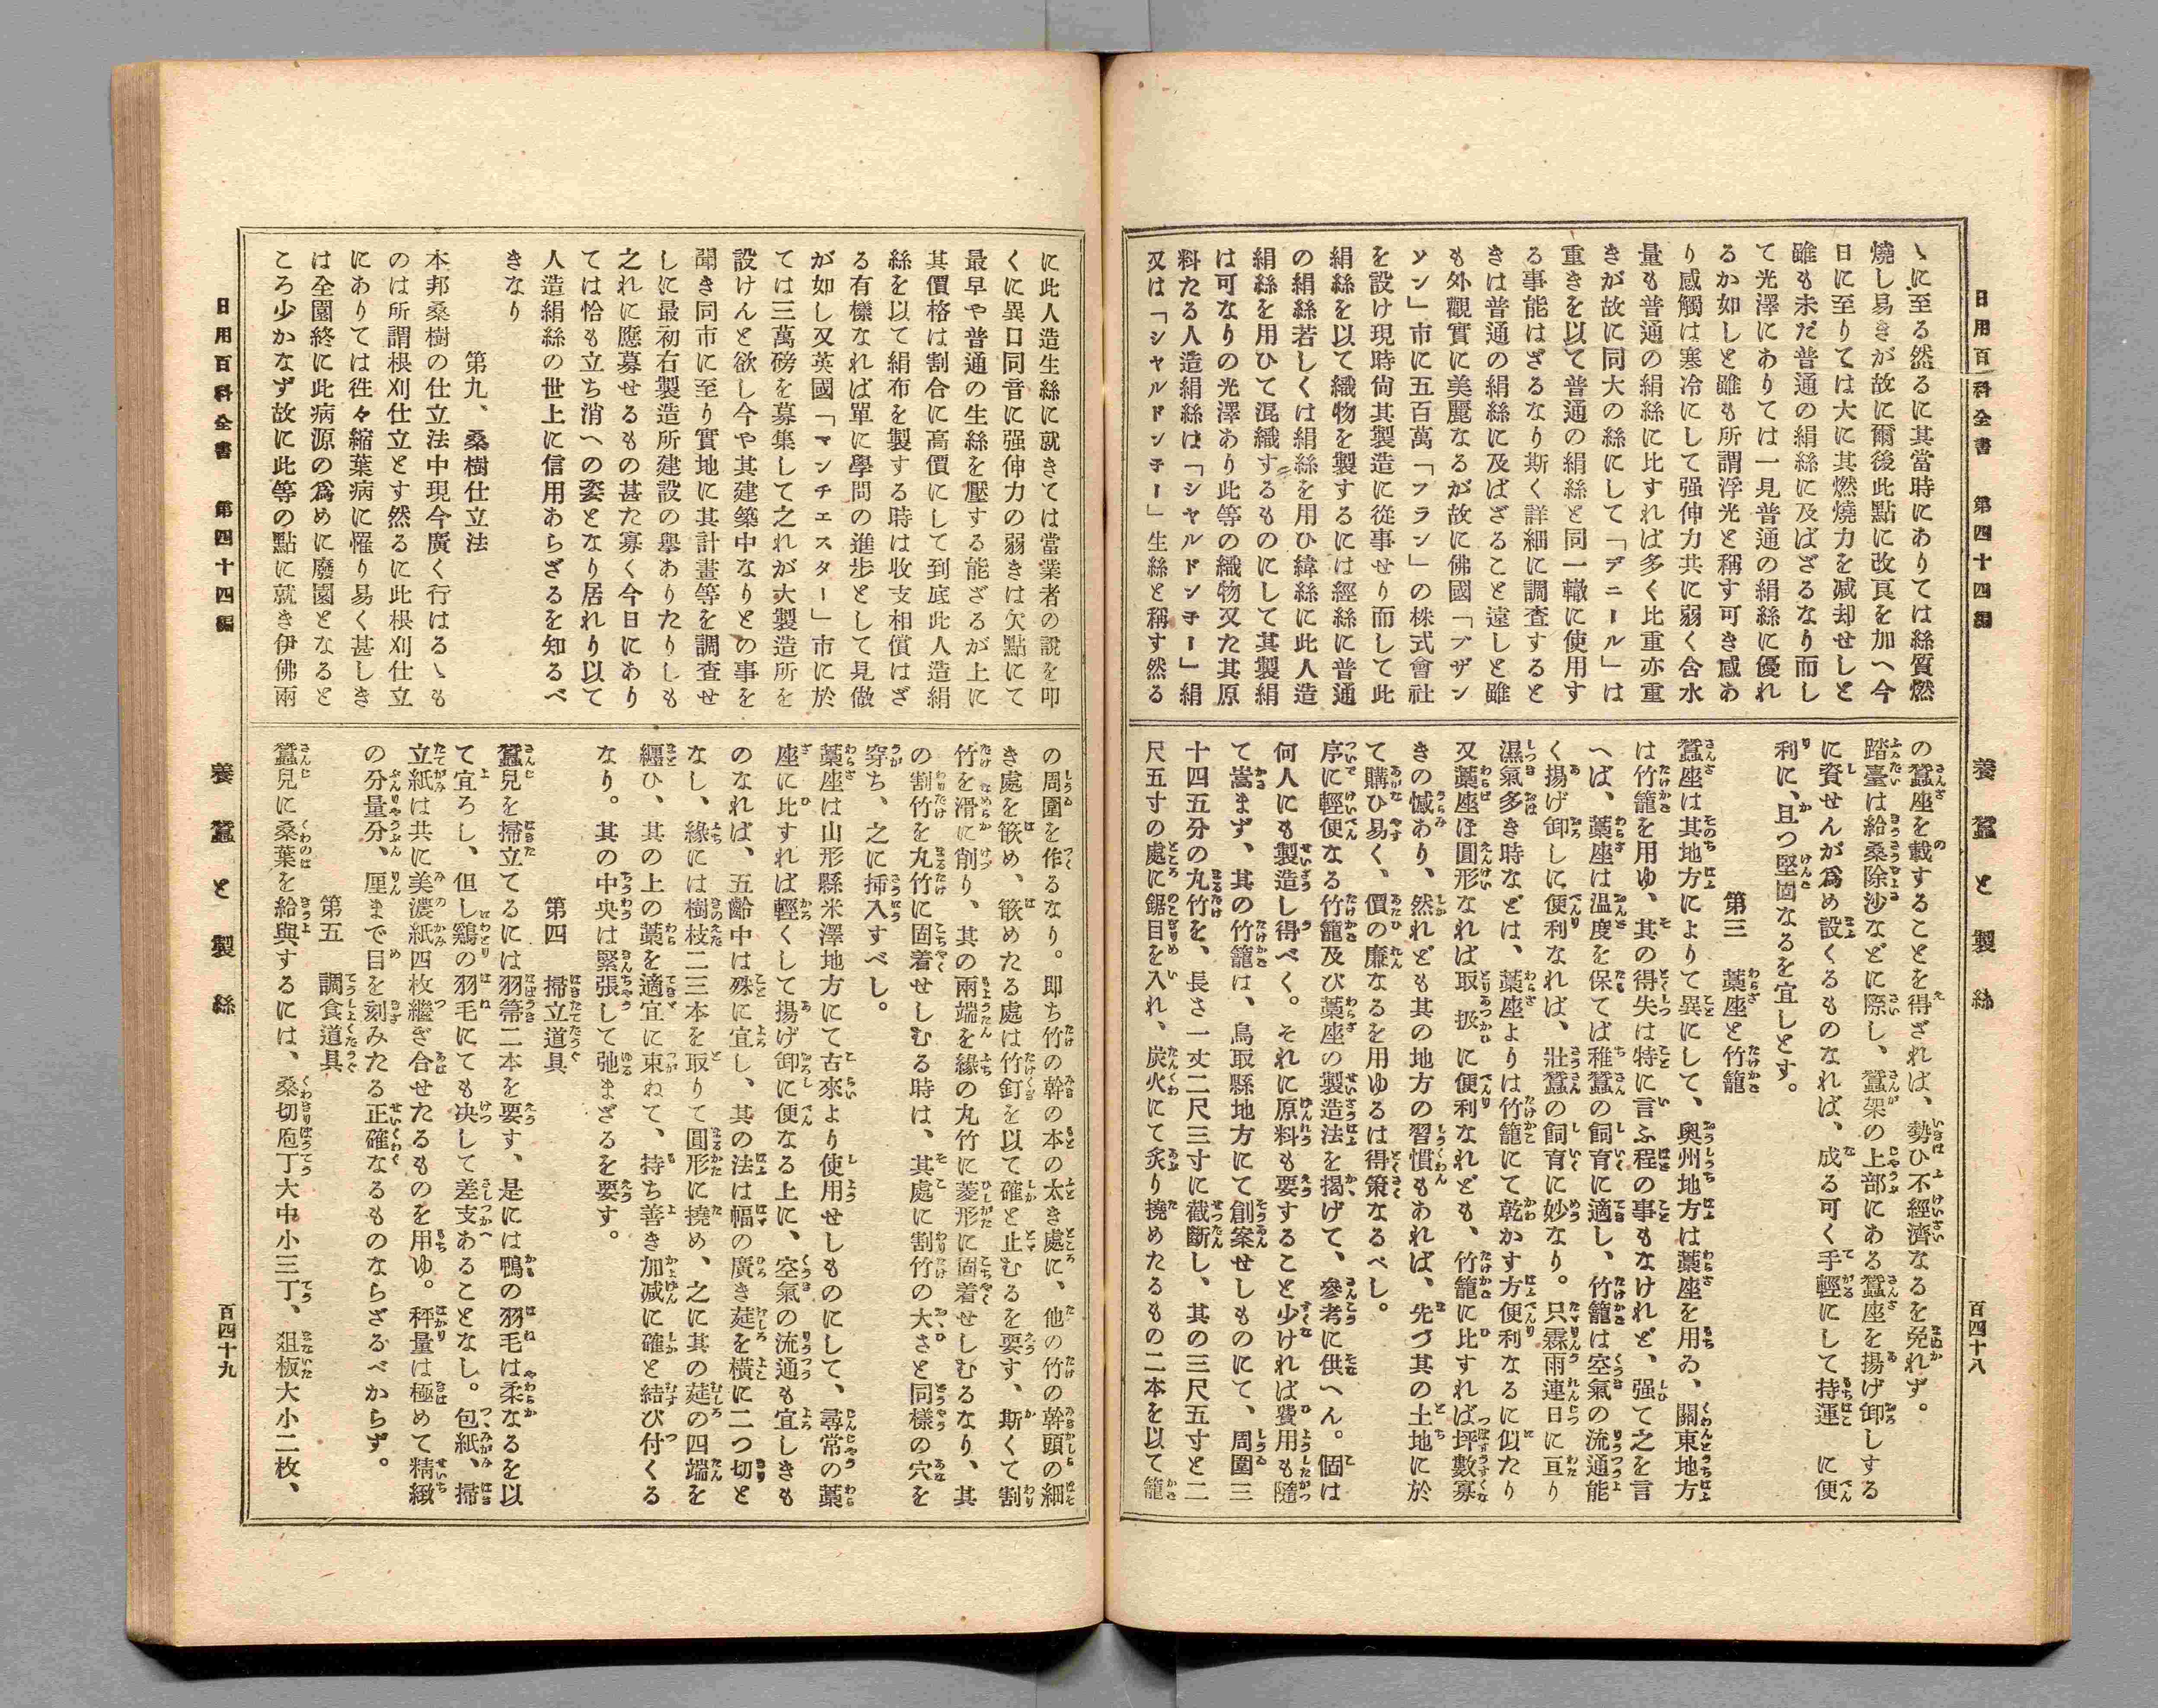 日用百科全書　第四十四編
養蠶と製絲
百四十八
ゝに至る然るに其當時にありては絲質燃
燒し易きが故に爾後此點に改良を加へ今
日に至りては大に其燃燒力を减却せしと
雖も未だ普通の絹絲に及ばざるなり而し
て光澤にありては一見普通の絹絲に優れ
るか如しと雖も所謂浮光と稱す可き感あ
り感觸は寒冷にして强伸力共に弱く含水
量も普通の絹絲に比すれば多く比重亦重
きが故に同大の絲にして「デニール」は
重きを以て普通の絹絲と同一轍に使用す
る事能はざるなり斯く詳細に調査すると
きは普通の絹絲に及ばざること遠しと雖
も外觀實に美麗なるが故に佛國「ブザン
ソン」市に五百萬「フラン」の株式會社
を設け現時尙其製造に從事せり而して此
絹絲を以て織物を製するには經絲に普通
の絹絲若しくは絹絲を用ひ緯絲に此人造
絹絲を用ひて混織するものにして其製絹
は可なりの光澤あり此等の織物又た其原
料たる人造絹絲は「シャルドンチー」絹
又は「シャルドンチー」生絲と稱す然る
の蠶座を載することを得ざれば、勢ひ不經濟なるを免れず。
踏臺は給桑除沙などに際し、蠶架の上部にある蠶座を揚げ卸しする
に資せんが爲め設くるものなれば、成る可く手輕にして持運に便
利に、且つ堅固なるを宜しとす。
第三　藁座と竹籠
蠶座は其地方によりて異にして、奧州地方は藁座を用ゐ、關東地方
は竹籠を用ゆ、其の得失は特に言ふ程の事もなけれど、强て之を言
へば、藁座は温度を保てば稚蠶の飼育に適し、竹籠は空氣の流通能
く揚げ卸しに便利なれば、壯蠶の飼育に妙なり。只霖雨連日に亘り
濕氣多き時などは、藁座よりは竹籠にて乾かす方便利なるに似たり
又藁座は圓形なれば取扱に便利なれども、竹籠に比すれば坪數寡
きの憾あり、然れども其の地方の習慣もあれば、先づ其の土地に於
て購ひ易く、價の廉なるを用ゆるは得策なるべし。
序に輕便なる竹籠及び藁座の製造法を揭げて、參考に供へん。個は
何人にも製造し得べく。それに原料も要すること少ければ費用も隨
て嵩まず、其の竹籠は、鳥取縣地方にて創案せしものにて、周圍三
十四五分の丸竹を、長さ一丈二尺三寸に截斷し、其の三尺五寸と二
尺五寸の處に鋸目を入れ、炭火にて炙り撓めたるもの二本を以て籠
に此人造生絲に就きては當業者の說を叩
くに異口同音に强伸力の弱きは欠點にて
最早や普通の生絲を壓する能ざるが上に
其價格は割合に高價にして到底此人造絹
絲を以て絹布を製する時は收支相償はざ
る有樣なれば單に學問の進步として見做
が如し又英國「マンチエスター」市に於
ては三萬磅を募集して之れが大製造所を
設けんと欲し今や其建築中なりとの事を
聞き同市に至り實地に其計畫等を調査せ
しに最初右製造所建設の擧ありたりしも
之れに應募せるもの甚た寡く今日にあり
ては恰も立ち消への姿となり居れり以て
人造絹絲の世上に信用あらざるを知るべ
きなり
第九、桑樹仕立法
本邦桑樹の仕立法中現今廣く行はるゝも
のは所謂根刈仕立とす然るに此根刈仕立
にありては徃々縮葉病に罹り易く甚しき
は全園終に此病源の爲めに廢園となると
ころ少かなず故に此等の點に就き伊佛兩
の周圍を作るなり。即ち竹の幹の本の太き處に、他の竹の幹頭の細
き處を篏め、篏めたる處は竹釘を以て確と止むるを要す、斯くて割
竹を滑に削り、其の兩端を緣の丸竹に菱形に固着せしむるなり、其
の割竹を丸竹に固着せしむる時は、其處に割竹の大さと同樣の穴を
穿ち、之に揷入すべし。
藁座は山形縣米澤地方にて古來より使用せしものにして、尋常の藁
座に比すれば輕くして揚げ卸に便なる上に、空氣の流通も宜しきも
のなれば、五齡中は殊に宜し、其の法は幅の廣き莚を橫に二つ切と
なし、緣には樹枝二三本を取りて圓形に撓め、之に其の莚の四端を
纒ひ、其の上の藁を適宜に束ねて、持ち善き加减に確と結び付くる
なり。其の中央は緊張して弛まざるを要す。
第四　掃立道具
蠶兒を掃立てるには羽箒二本を要す、是には鴨の羽毛は柔なるを以
て宜ろし、但し鷄の羽毛にても决して差支あることなし。包紙、掃
立紙は共に美濃紙四枚繼ぎ合せたるものを用ゆ。秤量は極めて精緻
の分量分、厘まで目を刻みたる正確なるものならざるべからず。
第五　調食道具
蠶兒に桑葉を給與するには、桑切庖丁大中小三丁、爼板大小二枚、
日用百科全書　第四十四編
養蠶と製絲
百四十九